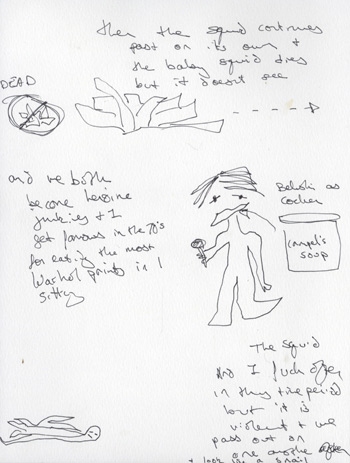 then the squid continues
past on its own +
the baby squid dies
but it doesn't see
DEAD
and we both
become heroine
junkies + I
get famous in the 70's
for eating the most
Warhol prints in 1
sitting
Belushi as
Cocker
campel's
soup
The squid
And I fuck often
in this time period
but it is
violent + we
pass out on
one another often
+ look like a